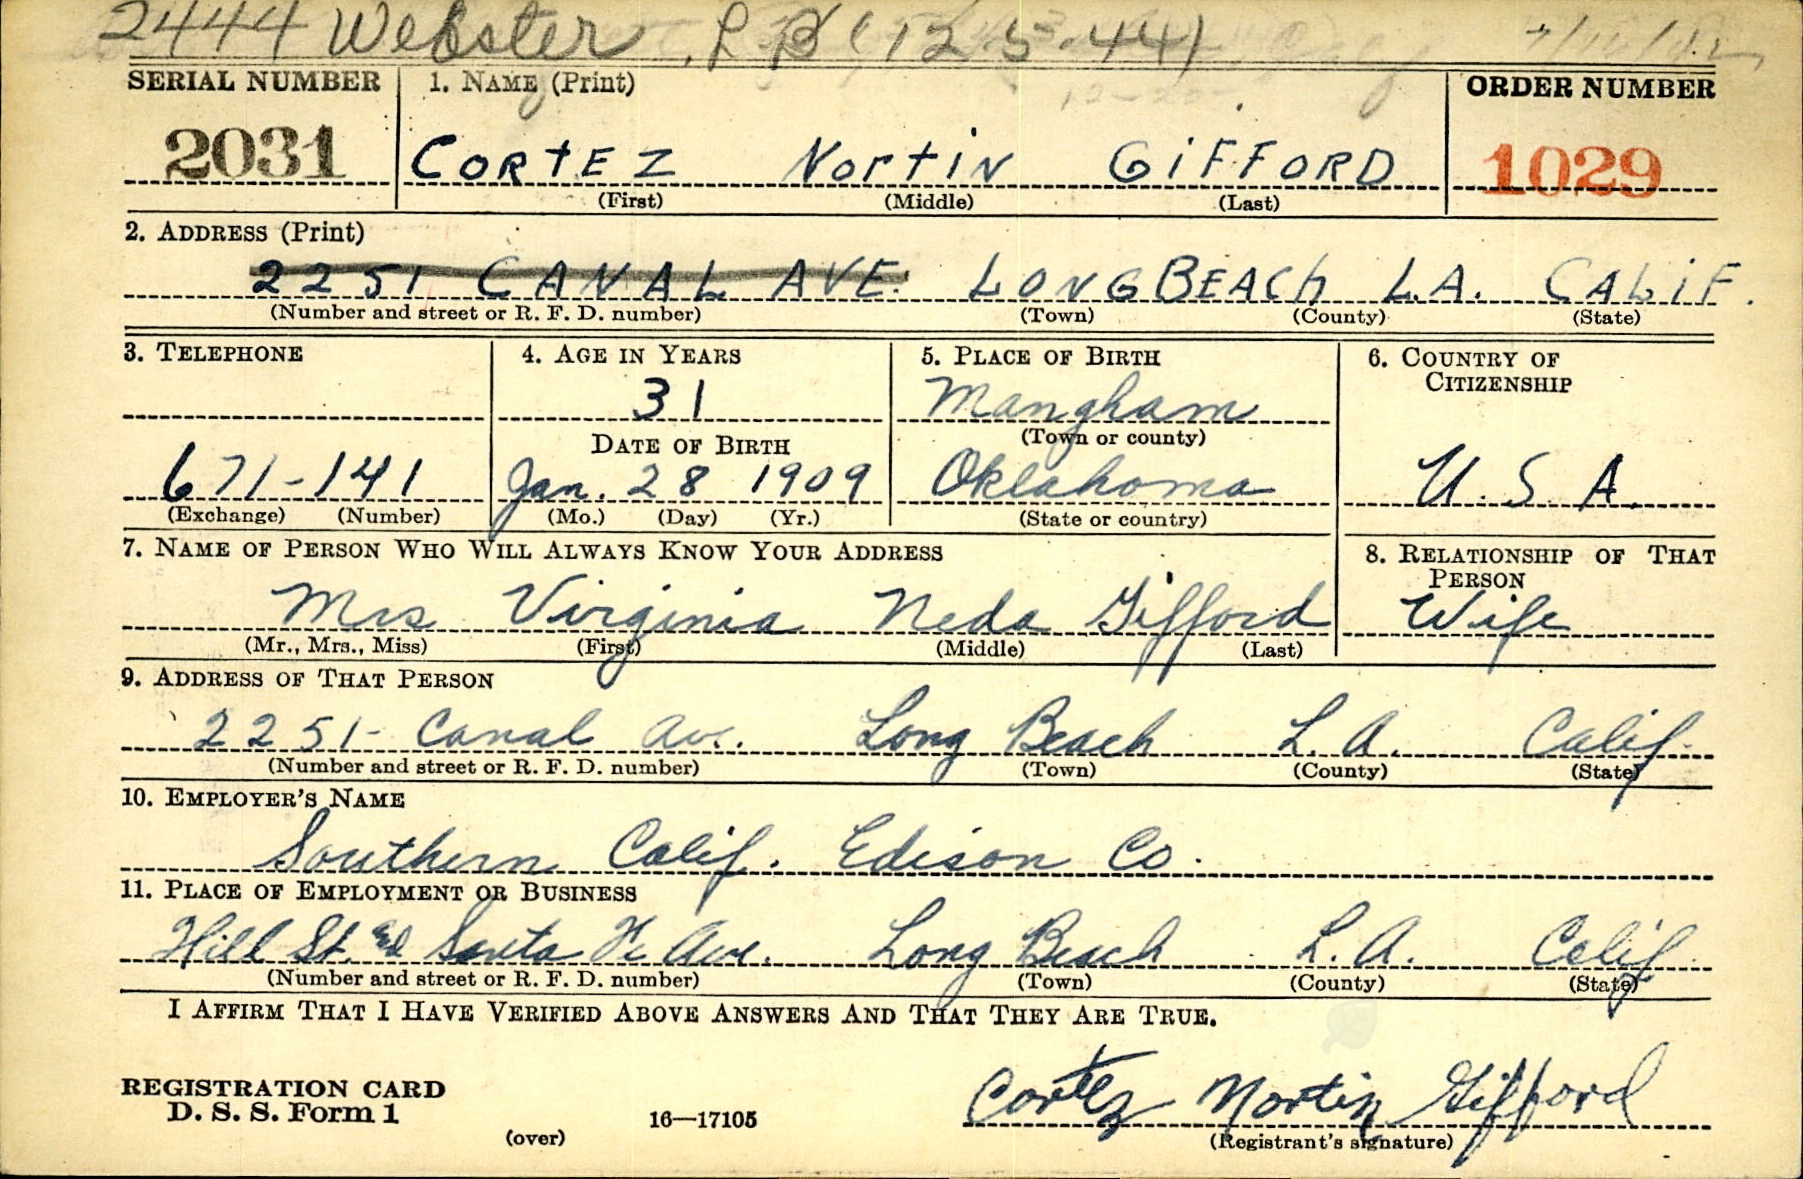 2444 Webster, L B (12-5-44)
SERIAL NUMBER 1. NAME (Print) ORDER NUMBER
2031 CORTEZ Nortin GIFFORD 1029
(First) (Middle) (Last)
2. ADDRESS (Print)
2251 CANAL AVE. LONG BEACH L.A. CALIF.
(Number and street or R. F. D. number) (Town) (County) (State)
3. TELEPHONE 4. AGE IN YEARS 5. PLACE OF BIRTH 6. COUNTRY OF CITIZENSHIP
31 Mangham
DATE OF BIRTH (Town or county)
671-141 Jan. 28 1909 Oklahoma U.S.A.
(Exchange) (Number) (Mo.) (Day) (Yr.) (State or country)
7. NAME OF PERSON WHO WILL ALWAYS KNOW YOUR ADDRESS 8. RELATIONSHIP OF THAT PERSON
Mrs Virginia Neda Gifford Wife
(Mr., Mrs., Miss) (First) (Middle) (Last)
9. ADDRESS OF THAT PERSON
2251- Canal Ave. Long Beach L.A. Calif.
(Number and street or R. F. D. number) (Town) (County) (State)
10. EMPLOYER'S NAME
Southern Calif. Edison Co.
11. PLACE OF EMPLOYMENT OR BUSINESS
Hill St. Santa Fe Ave. Long Beach L.A. Calif
(Number and street or R. F. D. number) (Town) (County) (State)
I AFFIRM THAT I HAVE VERIFIED ABOVE ANSWERS AND THAT THEY ARE TRUE.
Cortez Nortin Gifford
REGISTRATION CARD
D. S. S. Form 1 (over) 16—17105 (Registrant's signature)